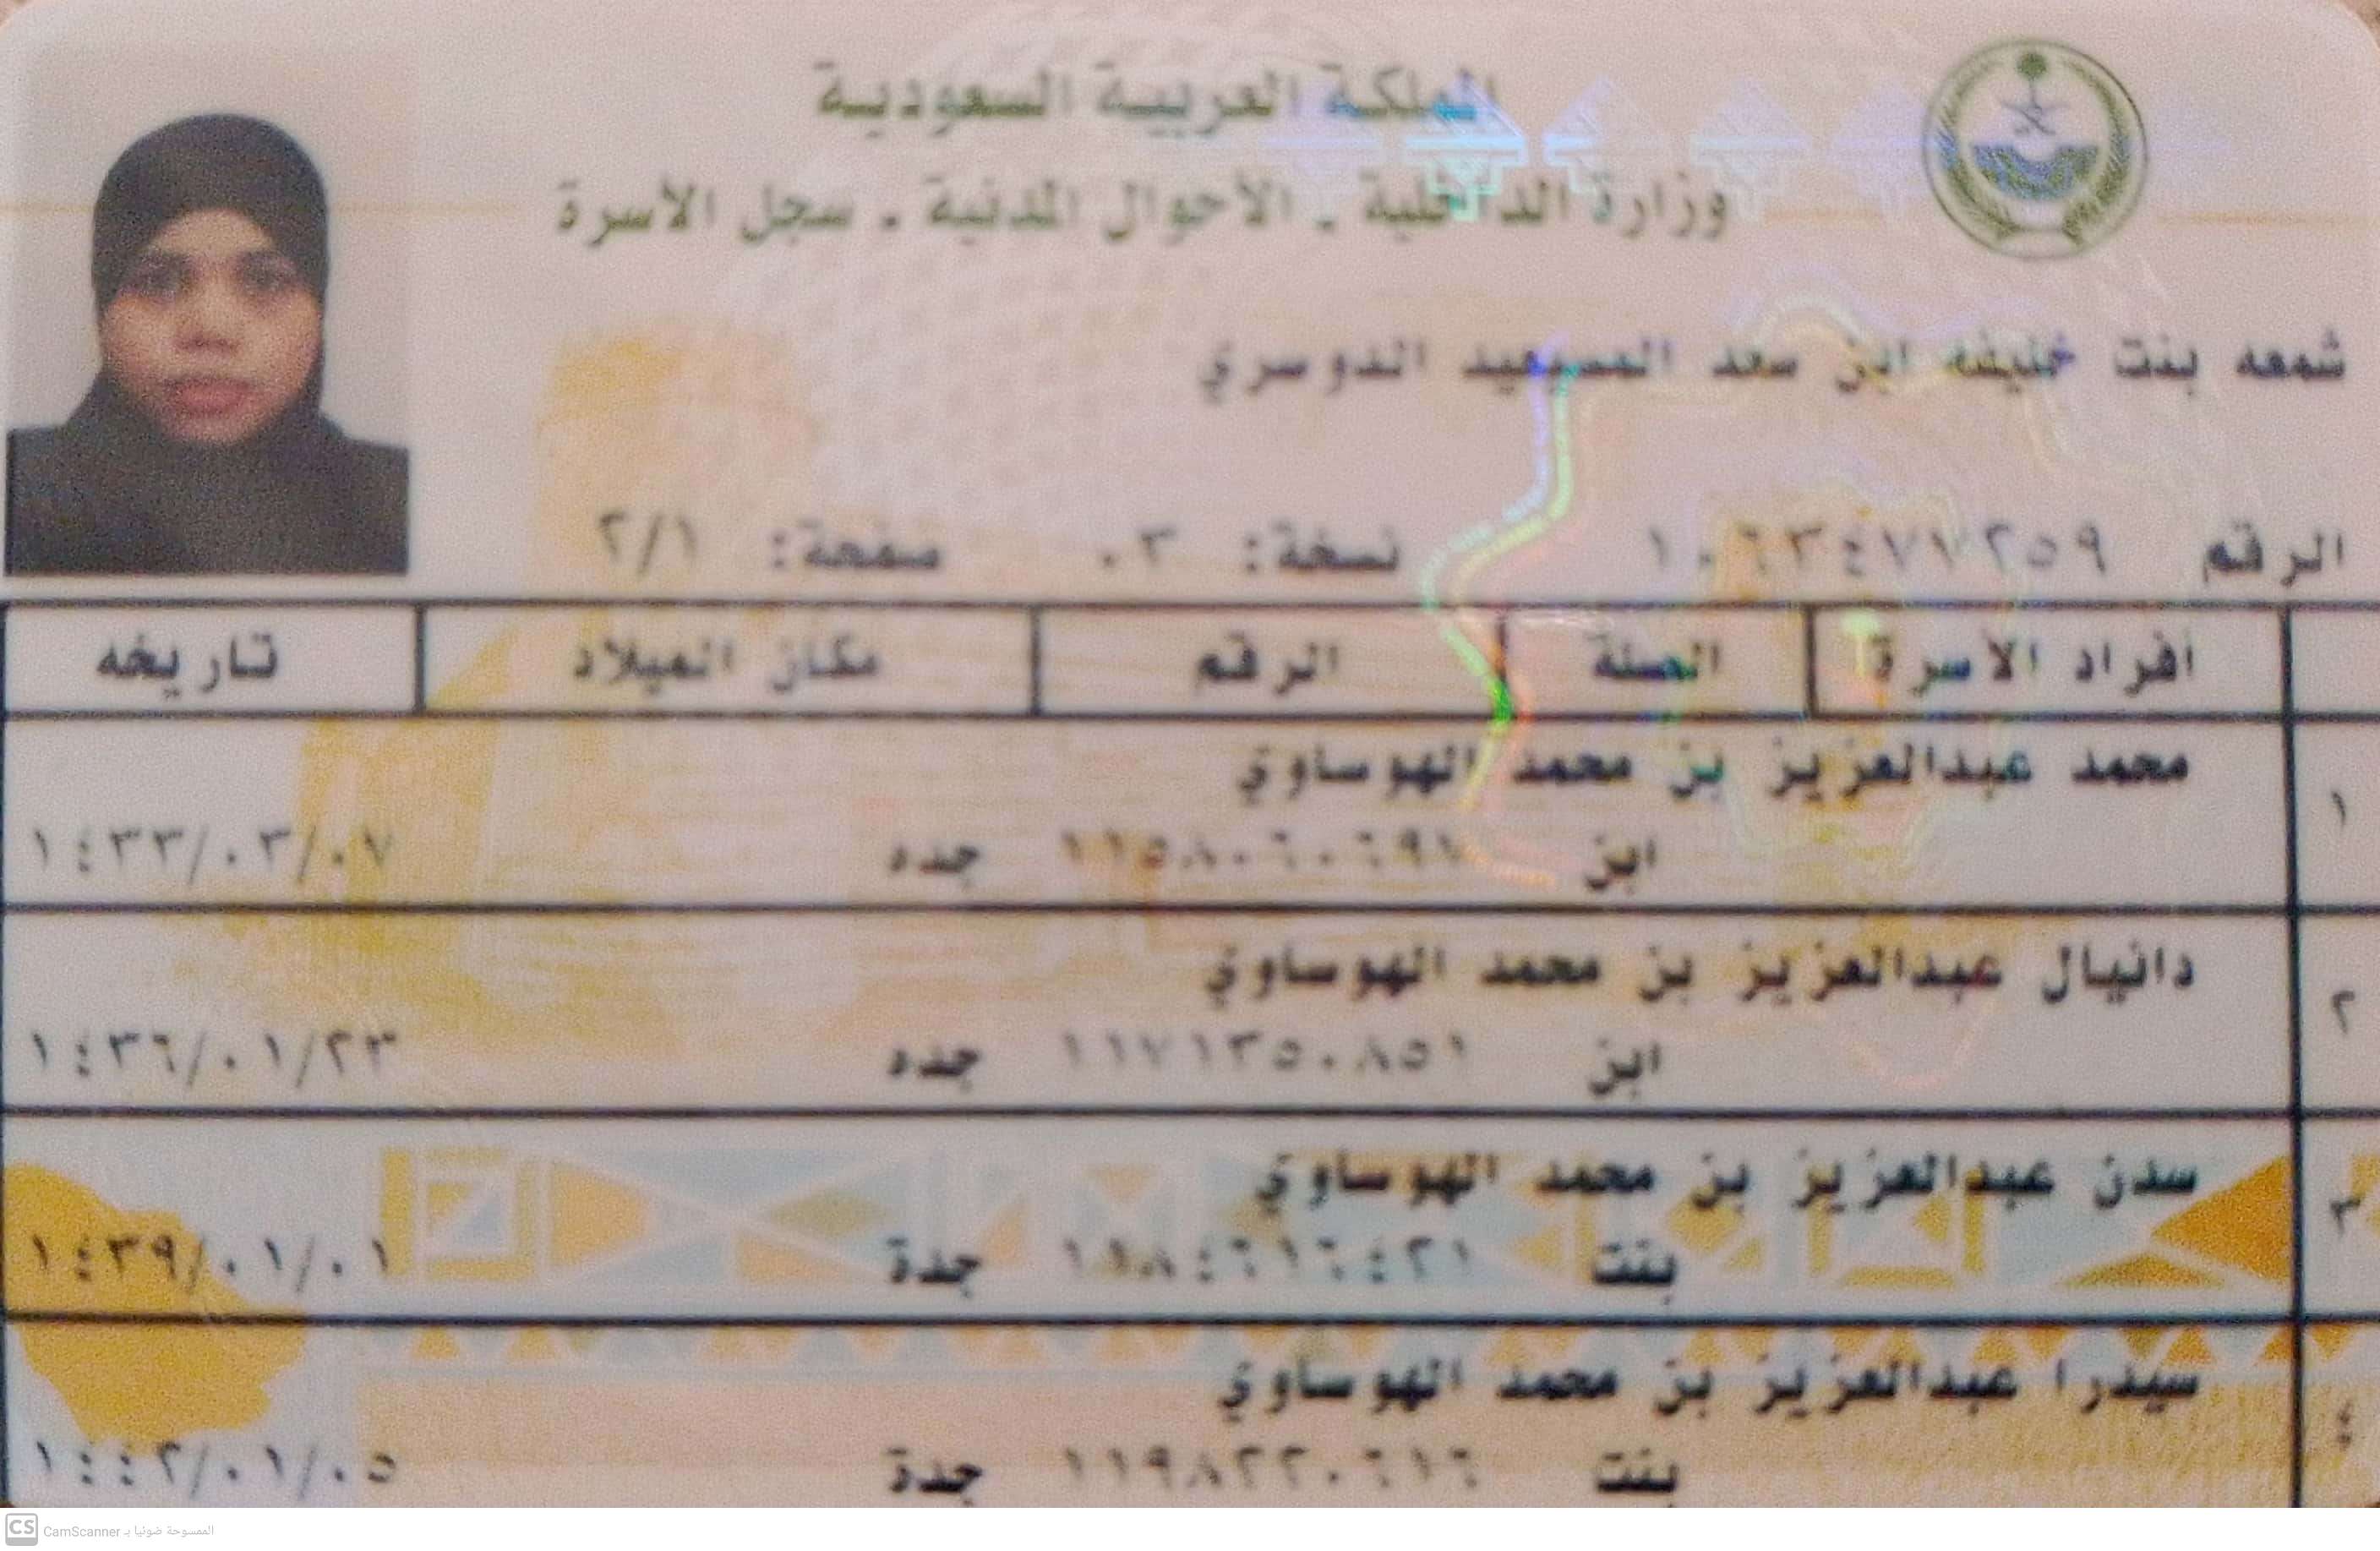 المملكة العربية السعودية
وزارة الداخلية . الأحوال المدنية . سجل الأسرة
شمعه بنت خليفه ابن سعد المسيعيد الدوسري
الرقم ١٠٦٣٤٧٧٢٥٩ نسخة: ٠٣ صفحة: ٢/١
أفراد الأسرة الصلة الرقم مكان الميلاد تاريخه
١ محمد عبدالعزيز بن محمد الهوساوي
ابن جده ١٤٣٣/٠٣/٠٧
٢ دانيال عبدالعزيز بن محمد الهوساوي
ابن ١١٧١٣٥٠٨٥١ جده ١٤٣٦/٠١/٢٣
٣ سدن عبدالعزيز بن محمد الهوساوي
بنت ١١٨٤٦١٦٤٢١ جدة ١٤٣٩/٠١/٠١
٤ سيدرا عبدالعزيز بن محمد الهوساوي
بنت ١١٩٨٢٢٠٦١٦ جدة ١٤٤٢/٠١/٠٥
CS الممسوحة ضوئيا بـ CamScanner